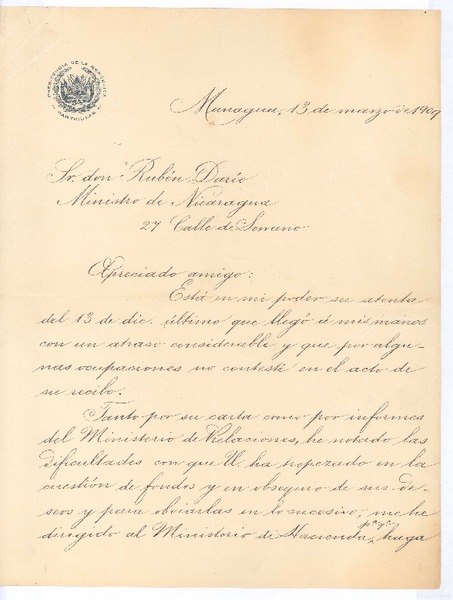 PRESIDENCIA DE LA REPUBLICA
PARTICULAR
Managua, 13 de marzo de 1909
Sr. don Rubén Darío
Ministro de Nicaragua
27 Calle de Serrano
Apreciado amigo:
Está en mi poder su atenta
del 13 de dic. último que llegó á mis manos
con un atraso considerable y que por algu-
nas ocupaciones no contesté en el acto de
su recibo.
Tanto por su carta como por informes
del Ministerio de Relaciones, he notado las
dificultades con que U ha tropezado en la
cuestión de fondos y en obsequio de sus de-
seos y para obviarlas en lo sucesivo, me he
dirigido al Ministerio de Hacienda, pa. qe. haga